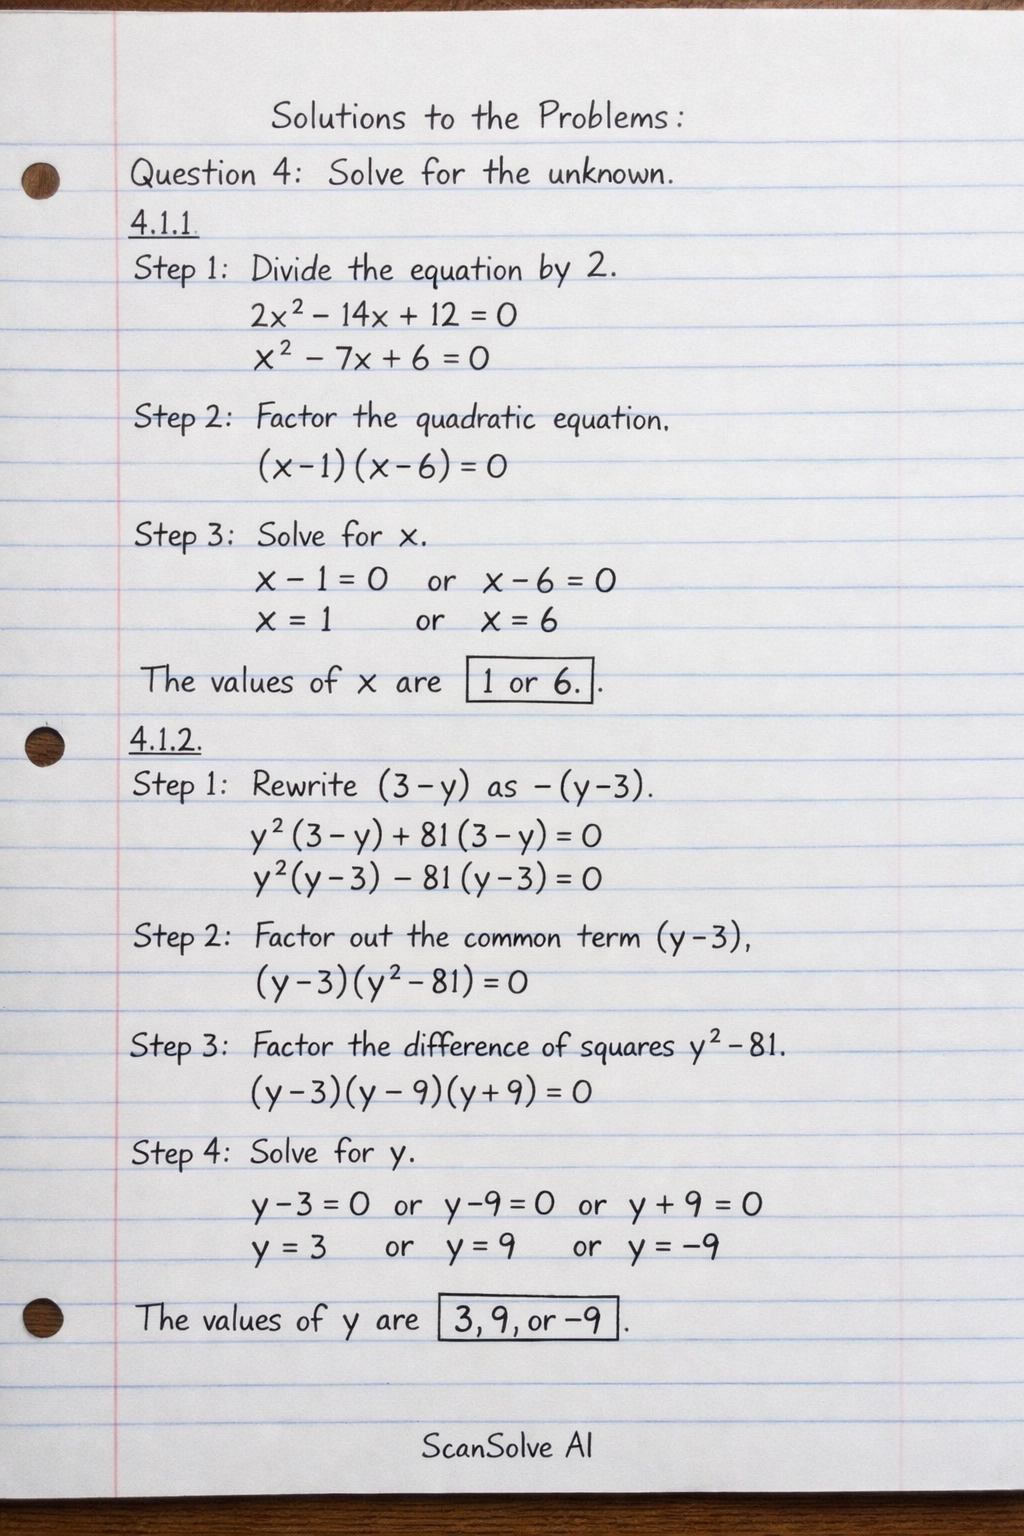 Solutions to the Problems:
Question 4: Solve for the unknown.
4.1.1.
Step 1: Divide the equation by 2.
2x² − 14x + 12 = 0
x² − 7x + 6 = 0
Step 2: Factor the quadratic equation.
(x−1)(x−6) = 0
Step 3: Solve for x.
x − 1 = 0 or x − 6 = 0
x = 1 or x = 6
The values of x are 1 or 6..
4.1.2.
Step 1: Rewrite (3−y) as −(y−3).
y²(3−y) + 81(3−y) = 0
y²(y−3) − 81(y−3) = 0
Step 2: Factor out the common term (y−3),
(y−3)(y²−81) = 0
Step 3: Factor the difference of squares y²−81.
(y−3)(y−9)(y+9) = 0
Step 4: Solve for y.
y−3 = 0 or y−9 = 0 or y+9 = 0
y = 3 or y = 9 or y = −9
The values of y are 3, 9, or −9.
ScanSolve AI